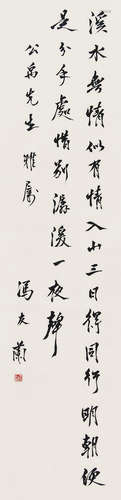 溪水無情似有情入山三日得同行明朝便
是分手處惜別潺湲一夜聲
公禹先生雅屬
馮友蘭